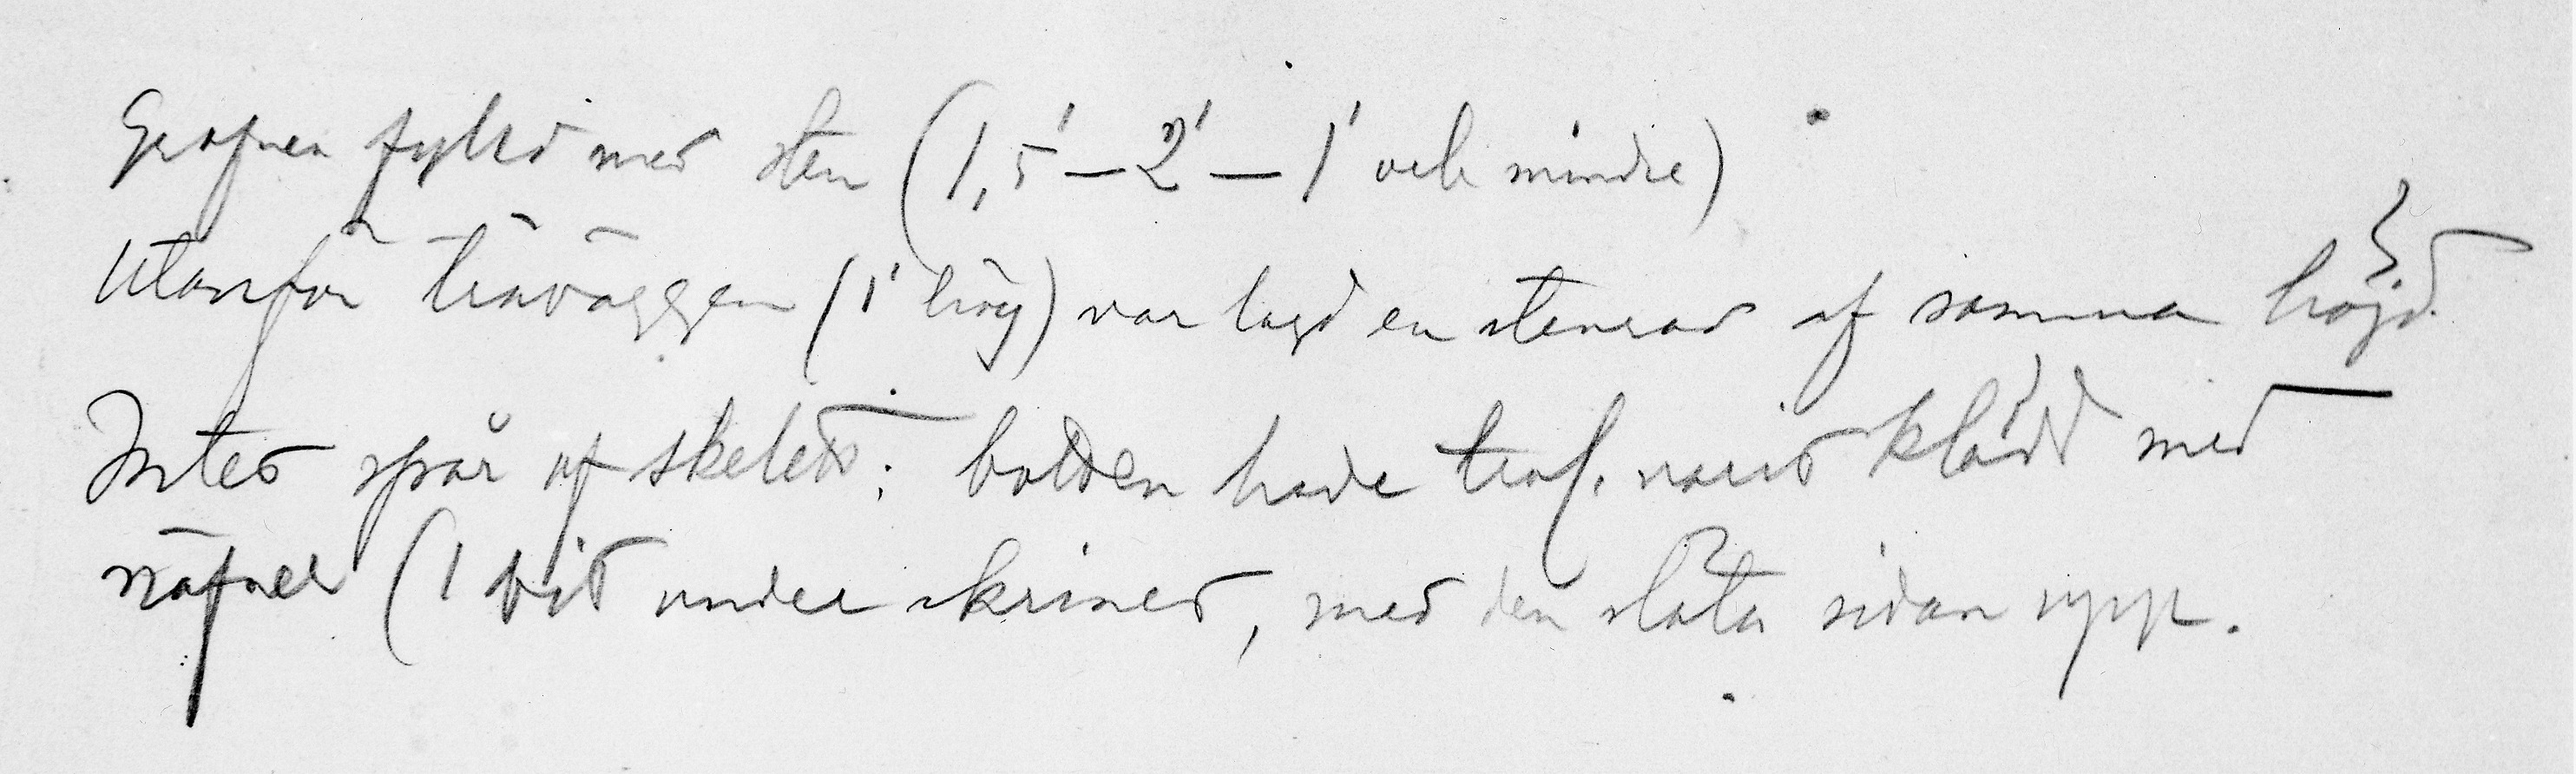 Grafven fylld med sten (1,5' – 2' – 1' och mindre)
Utanför träväggen (1' hög) var lagd en stenrad af samma höjd.
Intet spår af skelett; botten hade trol. varit klädd med
näfver (1 bit under skrinet, med den släta sidan upp.